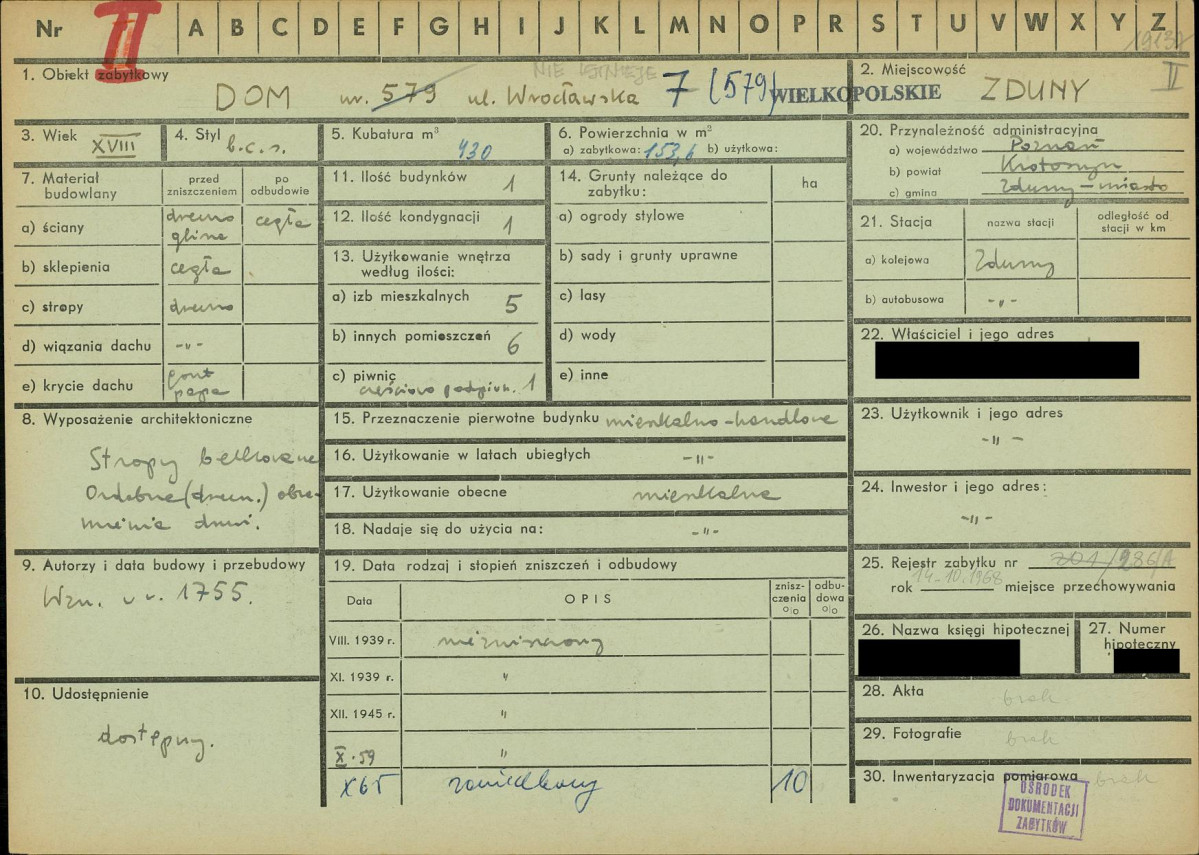 Nr II A B C D E F G H I J K L M N O P R S T U V W X Y Z
1. Obiekt zabytkowy
NIE ISTNIEJE
DOM nr. 579 ul. Wrocławska 7 (579)
WIELKOPOLSKIE
2. Miejscowość
II
ZDUNY
3. Wiek XVIII
4. Styl b.c.s.
5. Kubatura m³
430
6. Powierzchnia w m²
a) zabytkowa: 153,6 b) użytkowa:
20. Przynależność administracyjna
a) województwo Poznań
b) powiat Krotoszyn
c) gmina Zduny-miasto
7. Materiał budowlany
przed zniszczeniem
po odbudowie
a) ściany drewno glina cegła
b) sklepienia cegła
c) stropy drewno
d) wiązania dachu -"-
e) krycie dachu gont papa
11. Ilość budynków 1
12. Ilość kondygnacji 1
13. Użytkowanie wnętrza
według ilości:
a) izb mieszkalnych 5
b) innych pomieszczeń 6
c) piwnic
częściowo podpiwn. 1
14. Grunty należące do
zabytku:
ha
a) ogrody stylowe
b) sady i grunty uprawne
c) lasy
d) wody
e) inne
21. Stacja
nazwa stacji
odległość od
stacji w km
a) kolejowa Zduny
b) autobusowa -"-
22. Właściciel i jego adres
8. Wyposażenie architektoniczne
Stropy belkowane
Ozdobne (drewn.) obra-
mienie drzwi.
15. Przeznaczenie pierwotne budynku mieszkalno-handlowe
16. Użytkowanie w latach ubiegłych -"-
17. Użytkowanie obecne mieszkalne
18. Nadaje się do użycia na: -"-
23. Użytkownik i jego adres
-"-
24. Inwestor i jego adres:
-"-
9. Autorzy i data budowy i przebudowy
Wzn. w r. 1755.
10. Udostępnienie
dostępny.
19. Data rodzaj i stopień zniszczeń i odbudowy
Data
OPIS
znisz-
czenia
o|o
odbu-
dowa
o|o
VIII. 1939 r. niezniszczony
XI. 1939 r. "
XII. 1945 r. "
X.59 "
X 65 zaniedbany 10
25. Rejestr zabytku nr 286/A
14-10.1968
rok miejsce przechowywania
26. Nazwa księgi hipotecznej
27. Numer
hipoteczny
28. Akta brak
29. Fotografie brak
30. Inwentaryzacja pomiarowa brak
OŚRODEK
DOKUMENTACJI
ZABYTKÓW